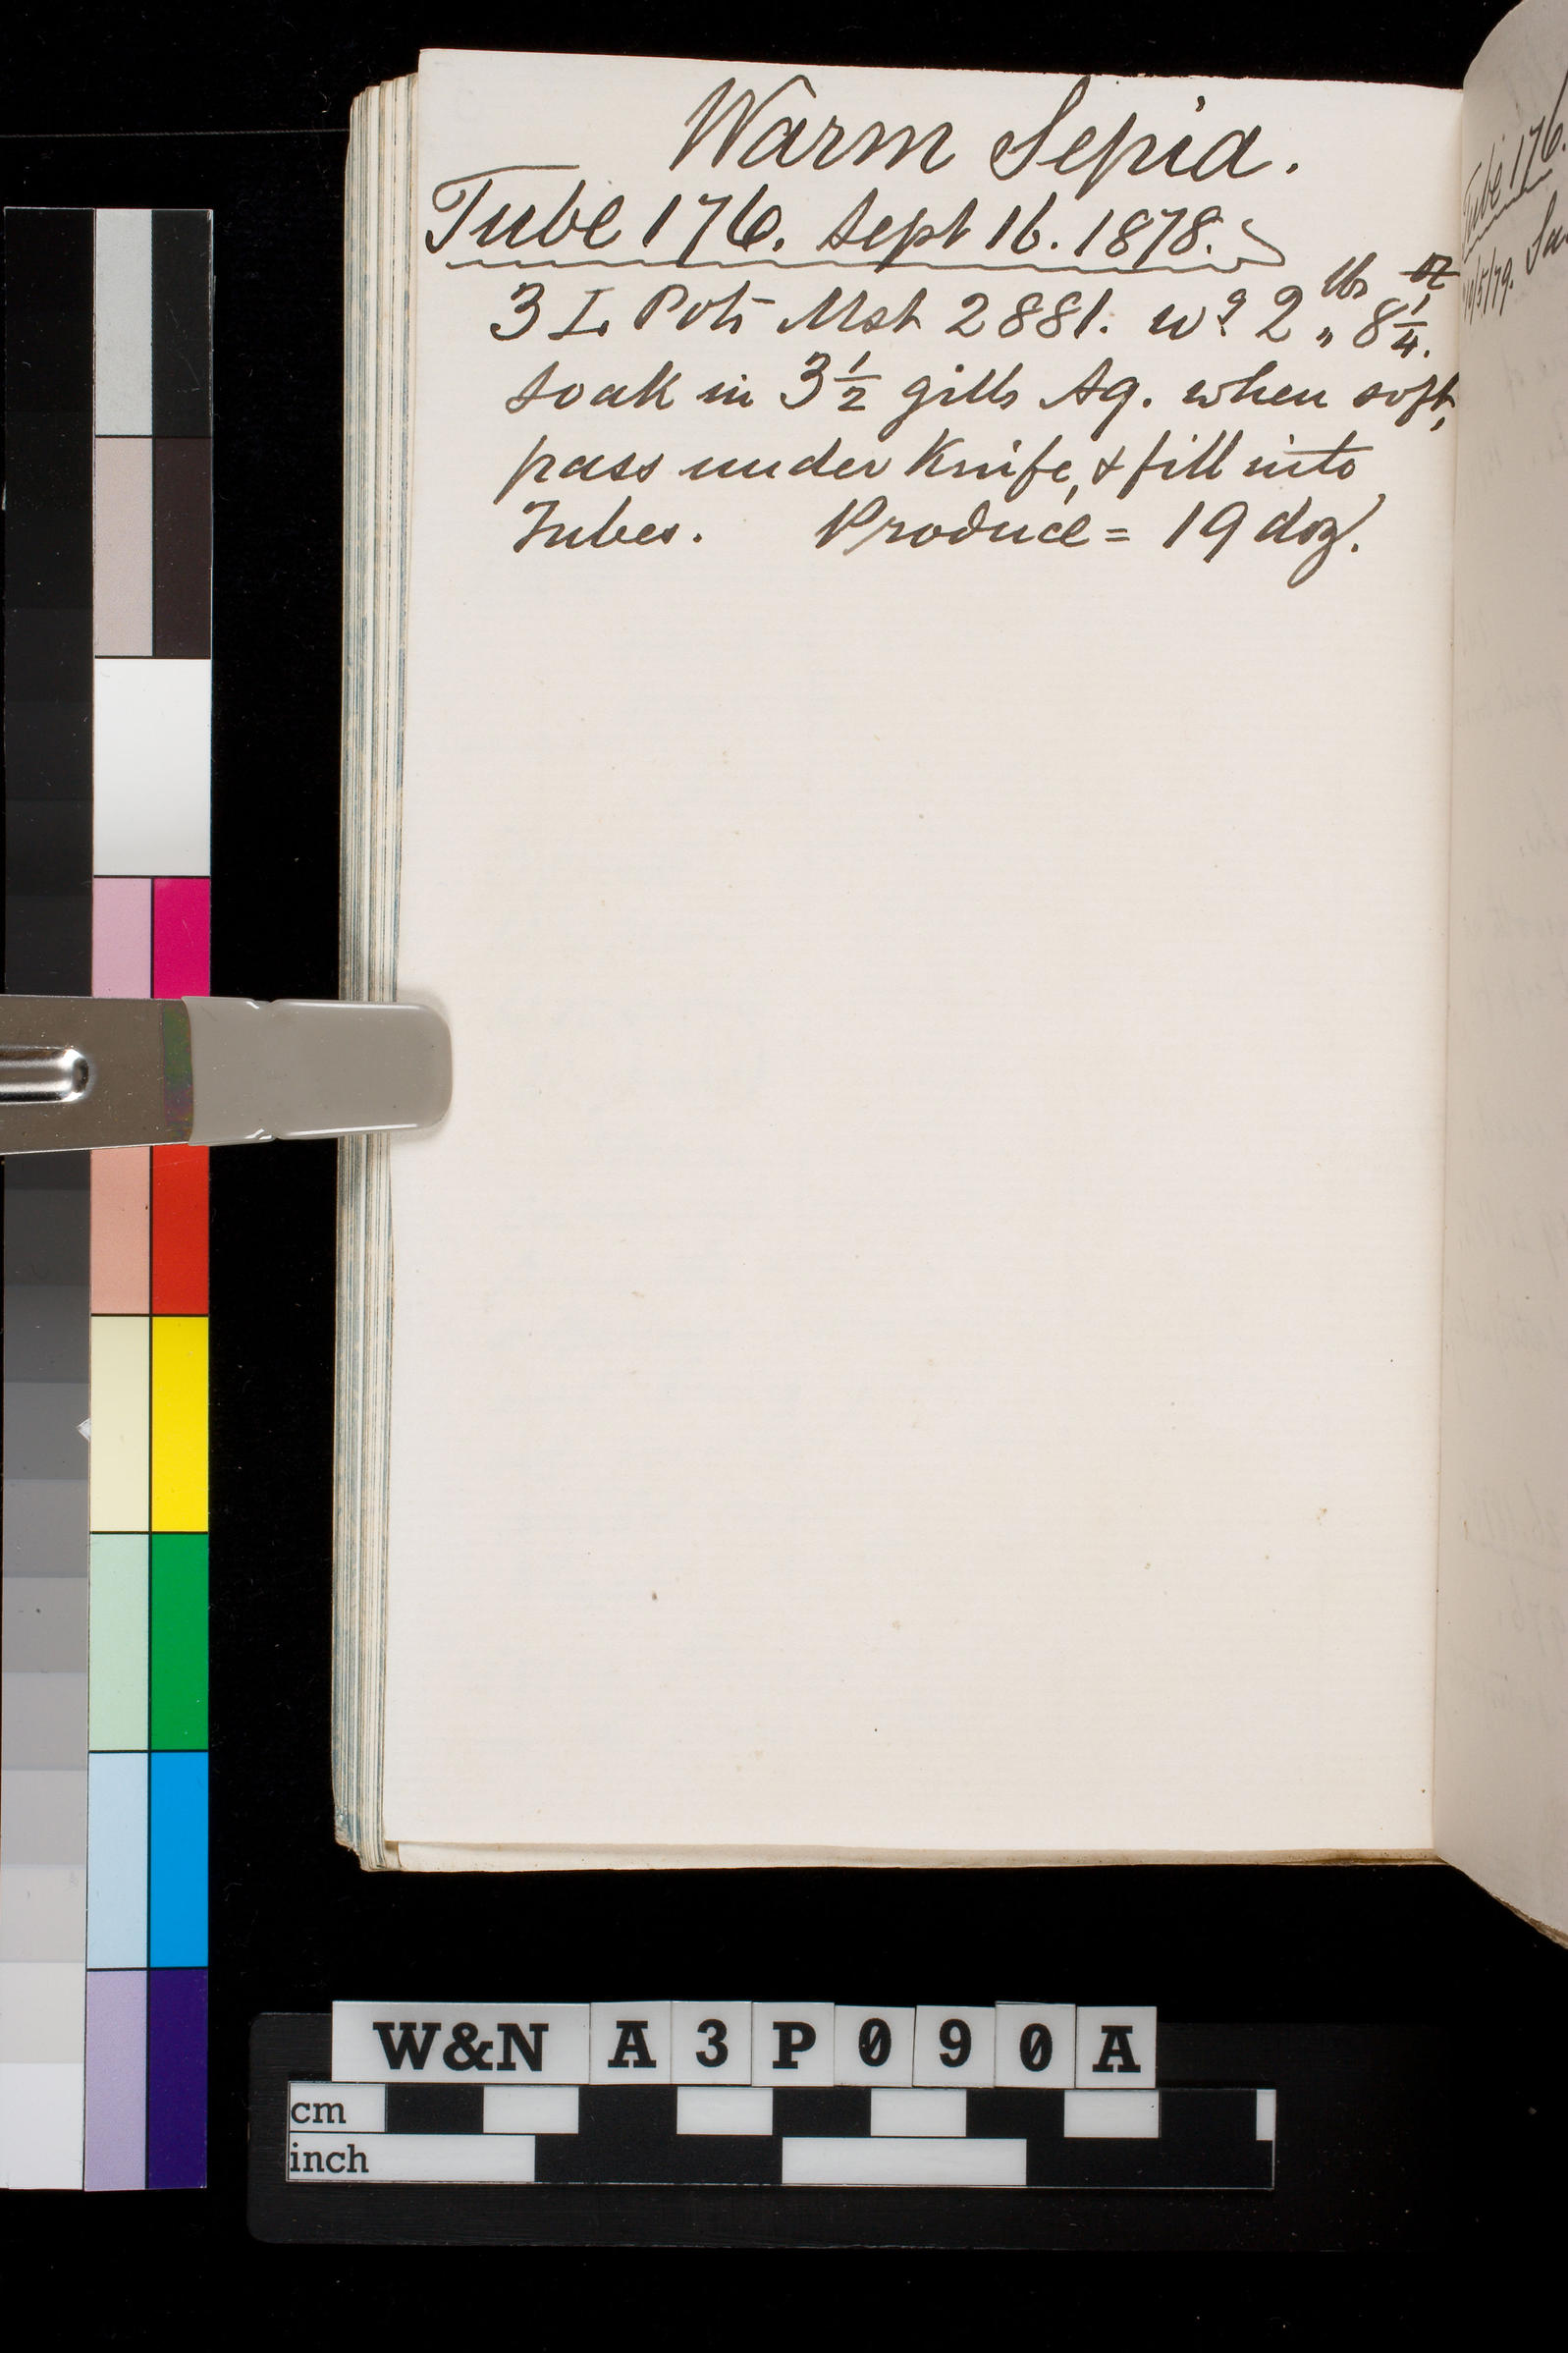 Warm Sepia.
Tube 176. Sept 16. 1878.
3 L. Pots Mst 2881. wg 2 lbs „ 8 1/4 oz.
soak in 3 1/2 gills Aq. when soft,
pass under Knife, & fill into
Tubes. Produce = 19 doz.
Tube 176.
W&N A3P090A
cm
inch